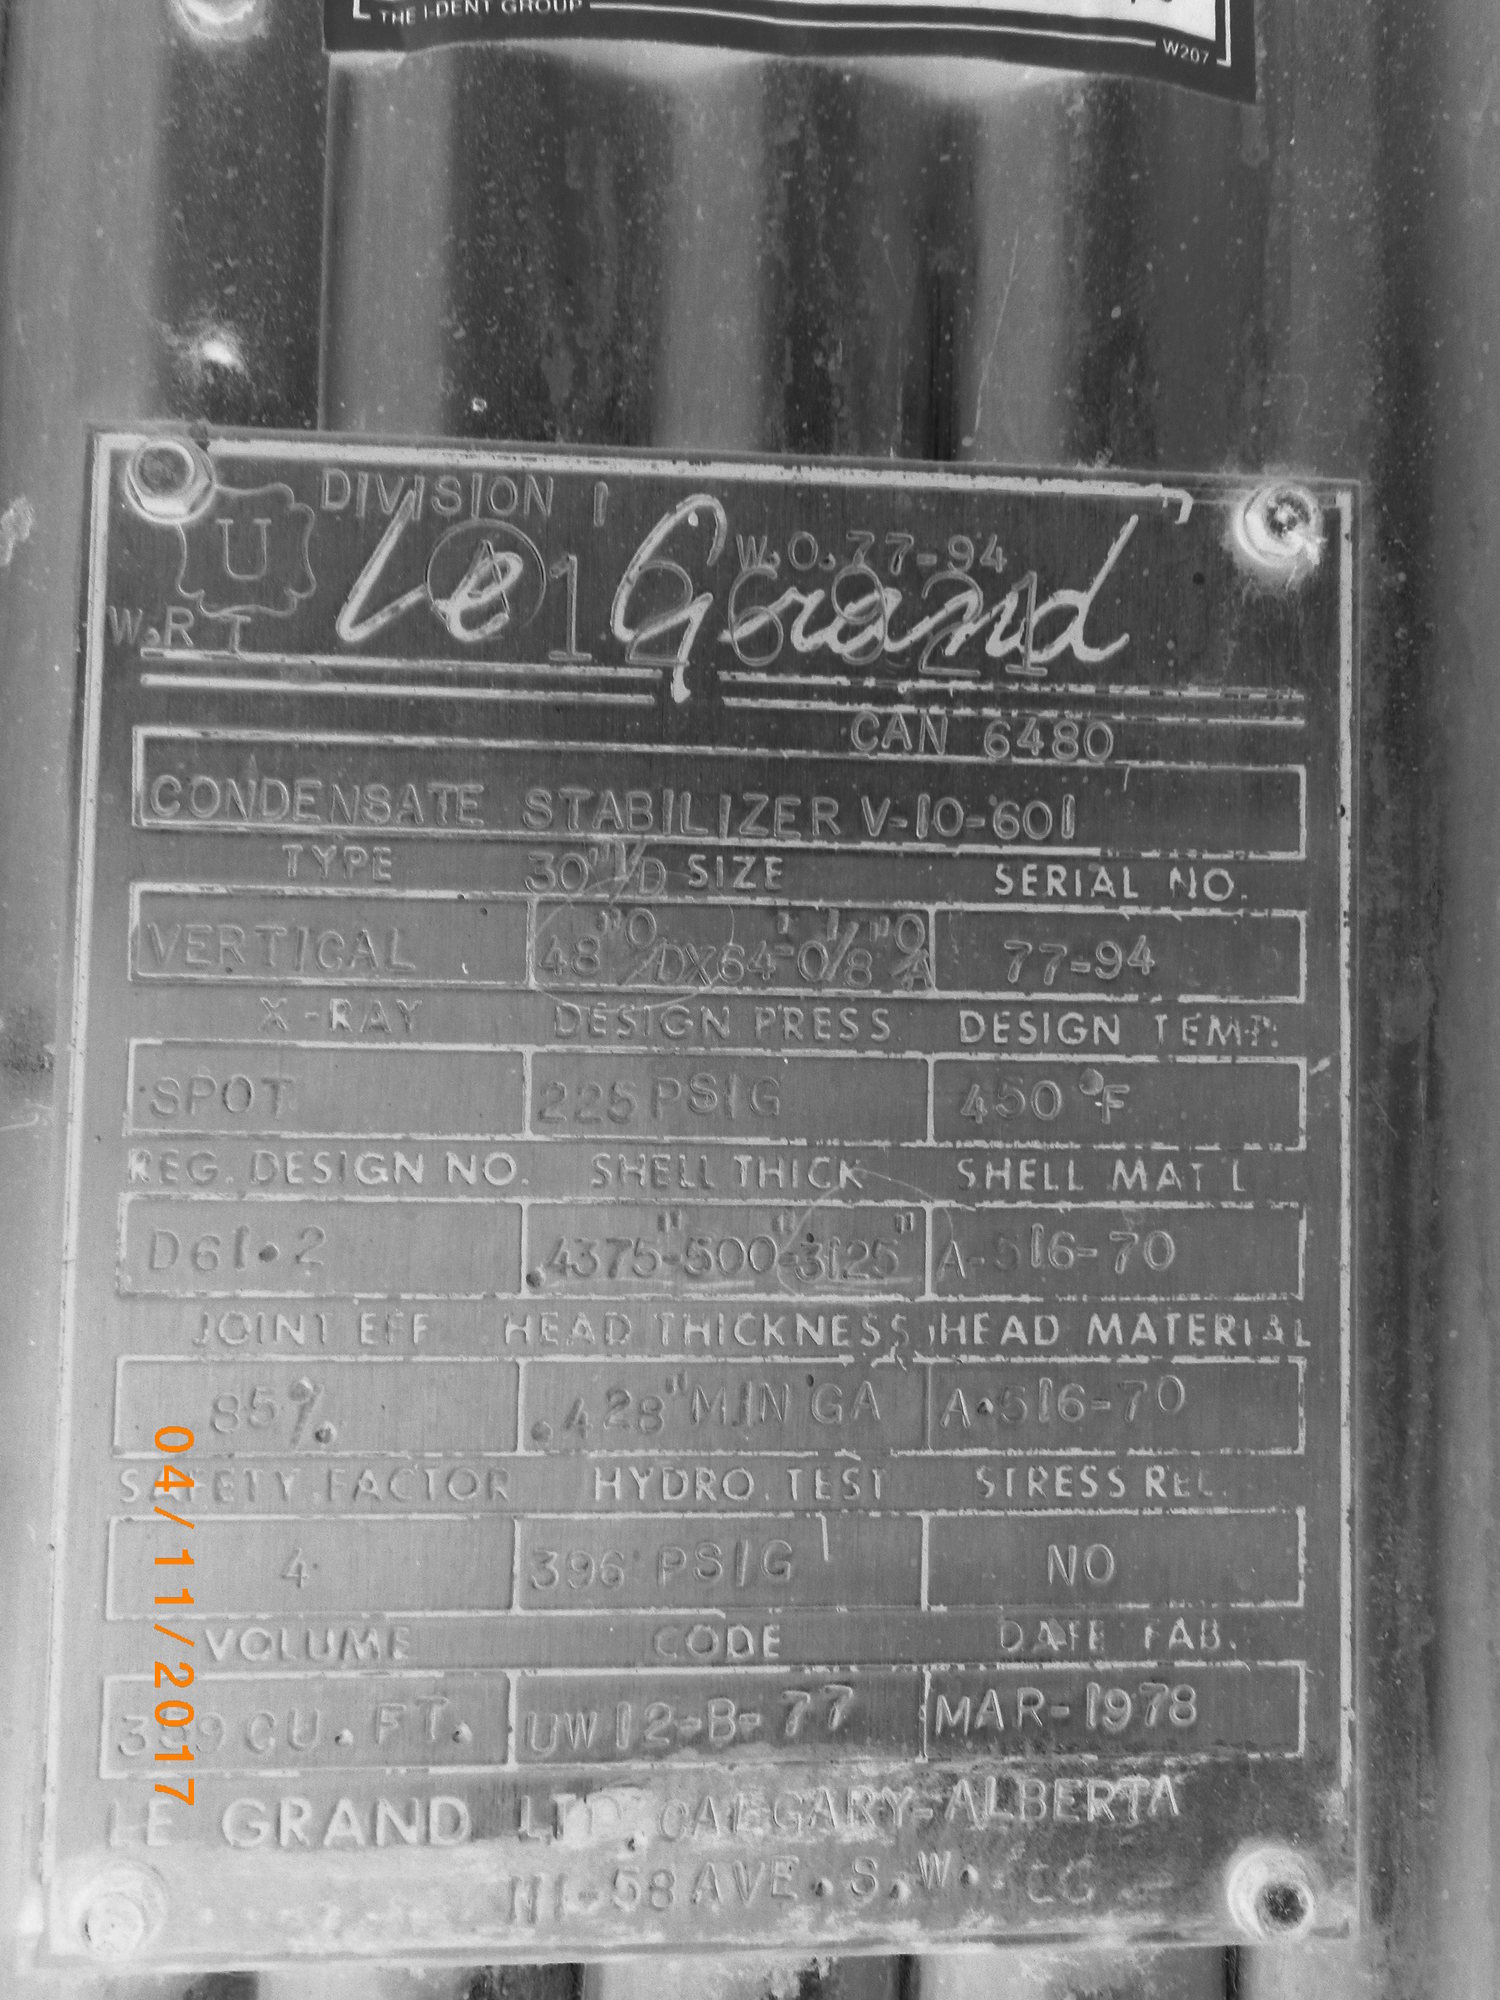 THE I-DENT GROUP
W207
DIVISION 1
U
Le Grand
W.O. 77-94
A 126821
W.R T
CAN 6480
CONDENSATE STABILIZER V-10-601
TYPE 30" I/D SIZE SERIAL NO.
VERTICAL 48" O/DX64'-0 1/8" OA 77-94
X-RAY DESIGN PRESS DESIGN TEMP.
SPOT 225 PSIG 450 °F
REG. DESIGN NO. SHELL THICK SHELL MAT'L
D61.2 .4375"-500"-3125" A-516-70
JOINT EFF HEAD THICKNESS HEAD MATERIAL
85% .428" MIN GA A.516-70
SAFETY FACTOR HYDRO. TEST STRESS REL.
4 396 PSIG NO
VOLUME CODE DATE FAB.
CU. FT. UW12-B-77 MAR-1978
LE GRAND LTD. CALGARY-ALBERTA
58 AVE. S.W.
04/11/2017